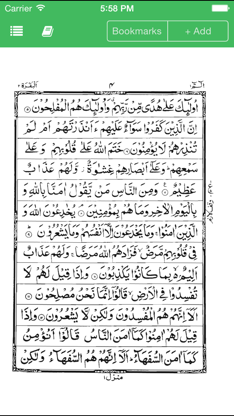 Carrier 5:58 PM
Bookmarks + Add
البقرة ٢ ٣ الٓمّٓ ١
اُولٰٓئِكَ عَلٰى هُدًى مِّنْ رَّبِّهِمْ وَاُولٰٓئِكَ هُمُ الْمُفْلِحُوْنَ
اِنَّ الَّذِيْنَ كَفَرُوْا سَوَآءٌ عَلَيْهِمْ ءَاَنْذَرْتَهُمْ اَمْ لَمْ
تُنْذِرْهُمْ لَا يُؤْمِنُوْنَ خَتَمَ اللّٰهُ عَلٰى قُلُوْبِهِمْ وَعَلٰى
سَمْعِهِمْ وَعَلٰٓى اَبْصَارِهِمْ غِشَاوَةٌ وَّلَهُمْ عَذَابٌ
عَظِيْمٌ وَمِنَ النَّاسِ مَنْ يَّقُوْلُ اٰمَنَّا بِاللّٰهِ وَ
بِالْيَوْمِ الْاٰخِرِ وَمَا هُمْ بِمُؤْمِنِيْنَ يُخٰدِعُوْنَ اللّٰهَ وَ
الَّذِيْنَ اٰمَنُوْا وَمَا يَخْدَعُوْنَ اِلَّآ اَنْفُسَهُمْ وَمَا يَشْعُرُوْنَ
فِيْ قُلُوْبِهِمْ مَّرَضٌ فَزَادَهُمُ اللّٰهُ مَرَضًا وَلَهُمْ عَذَابٌ
اَلِيْمٌ بِمَا كَانُوْا يَكْذِبُوْنَ وَاِذَا قِيْلَ لَهُمْ لَا
تُفْسِدُوْا فِى الْاَرْضِ قَالُوْٓا اِنَّمَا نَحْنُ مُصْلِحُوْنَ
اَلَآ اِنَّهُمْ هُمُ الْمُفْسِدُوْنَ وَلٰكِنْ لَّا يَشْعُرُوْنَ وَاِذَا
قِيْلَ لَهُمْ اٰمِنُوْا كَمَآ اٰمَنَ النَّاسُ قَالُوْٓا اَنُؤْمِنُ
كَمَآ اٰمَنَ السُّفَهَآءُ اَلَآ اِنَّهُمْ هُمُ السُّفَهَآءُ وَلٰكِنْ
منزل ١